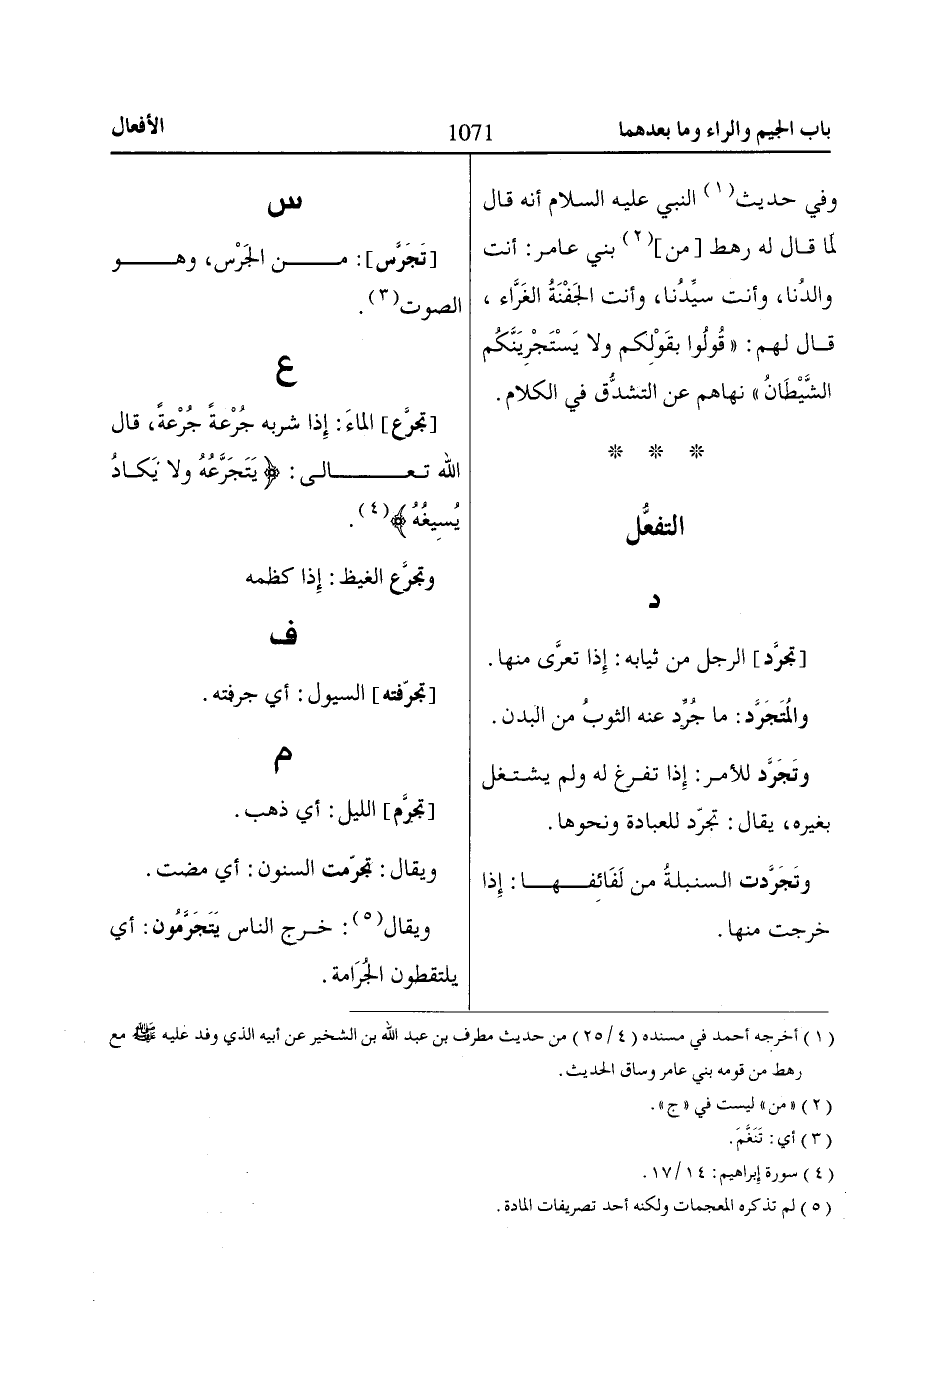 باب الجيم والراء وما بعدهما 1071 الأفعال
وفي حديث(١) النبي عليه السلام أنه قال
لمَا قال له رهط [من](٢) بني عامر: أنت
والدُنا، وأنت سيِّدُنا، وأنت الجَفْنَةُ الغَرَّاء ،
قال لهم: « قُولُوا بقَوْلكم ولا يَسْتَجْرِيَنَّكُم
الشَّيْطَانُ» نهاهم عن التشدُّق في الكلام.
* * *
التفعُّل
د
[تجرَّد] الرجل من ثيابه: إذا تعرَّى منها.
والُمتَجَرَّد: ما جُرِّد عنه الثوبُ من البدن.
وتَجَرَّد للأمر: إذا تفرغ له ولم يشتغل
بغيره، يقال: تجرّد للعبادة ونحوها.
وتَجَرَّدت السنبلةُ من لَفَائفِها: إذا
خرجت منها.
س
[تَجَرَّس]: من الجَرْس، وهو
الصوت(٣).
ع
[تجرَّع] الماءَ: إذا شربه جُرْعةً جُرْعةً، قال
الله تعالى: ﴿يَتَجَرَّعُهُ ولا يَكادُ
يُسيغُهُ﴾(٤).
وتجرَّع الغيظ: إذا كظمه
ف
[تجرّفته] السيول: أي جرفته.
م
[تجرَّم] الليل: أي ذهب.
ويقال: تجرّمت السنون: أي مضت.
ويقال(٥): خرج الناس يَتَجَرَّمُون: أي
يلتقطون الجُرَامة.
(١) أخرجه أحمد في مسنده (٢٥/٤) من حديث مطرف بن عبد الله بن الشخير عن أبيه الذي وفد عليه ﷺ مع
رهط من قومه بني عامر وساق الحديث.
(٢) «من» ليست في «ج».
(٣) أي: تَنَغَّمَ.
(٤) سورة إبراهيم: ١٧/١٤.
(٥) لم تذكره المعجمات ولكنه أحد تصريفات المادة.